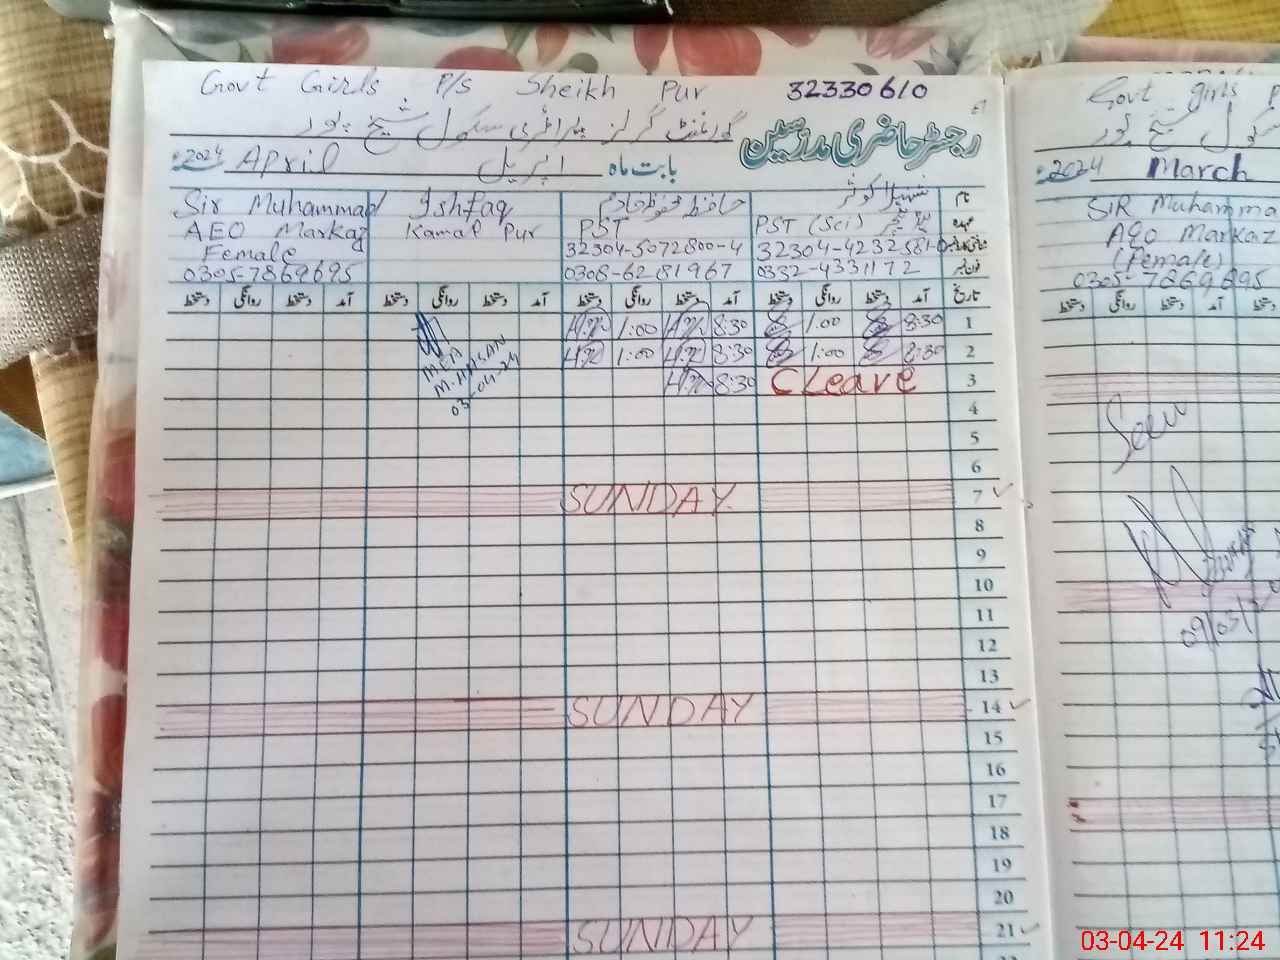 Govt Girls P/S Sheikh Pur 32330610
گورنمنٹ گرلز پرائمری سکول شیخ پور
رجسٹر حاضری مدرسین
بابت ماہ اپریل April 2024ء
نام
Sir Muhammad Ishfaq
AEO Markaz Kamal Pur
Female
0305-7869695
حافظ محفوظ
PST
32304-5072800-4
0308-6281967
شہیلا کوثر
PST (Sci)
32304-4232581-0
0332-4331172
تاریخ آمد دستخط روانگی دستخط آمد دستخط روانگی دستخط آمد دستخط روانگی دستخط آمد دستخط روانگی دستخط
1 8:30 1:00 8:30 1:00
2 8:30 1:00 8:30 1:00
3 C Leave 8:30
MEA
M. AHSAN
03-04-24
4
5
6
7 SUNDAY
8
9
10
11
12
13
14 SUNDAY
15
16
17
18
19
20
21 SUNDAY
22
Govt girls P
2024ء March
Sir Muhamma
AEO Markaz
(Female)
0305-7869695
دستخط روانگی دستخط آمد
Seen
09/03/2
03-04-24 11:24